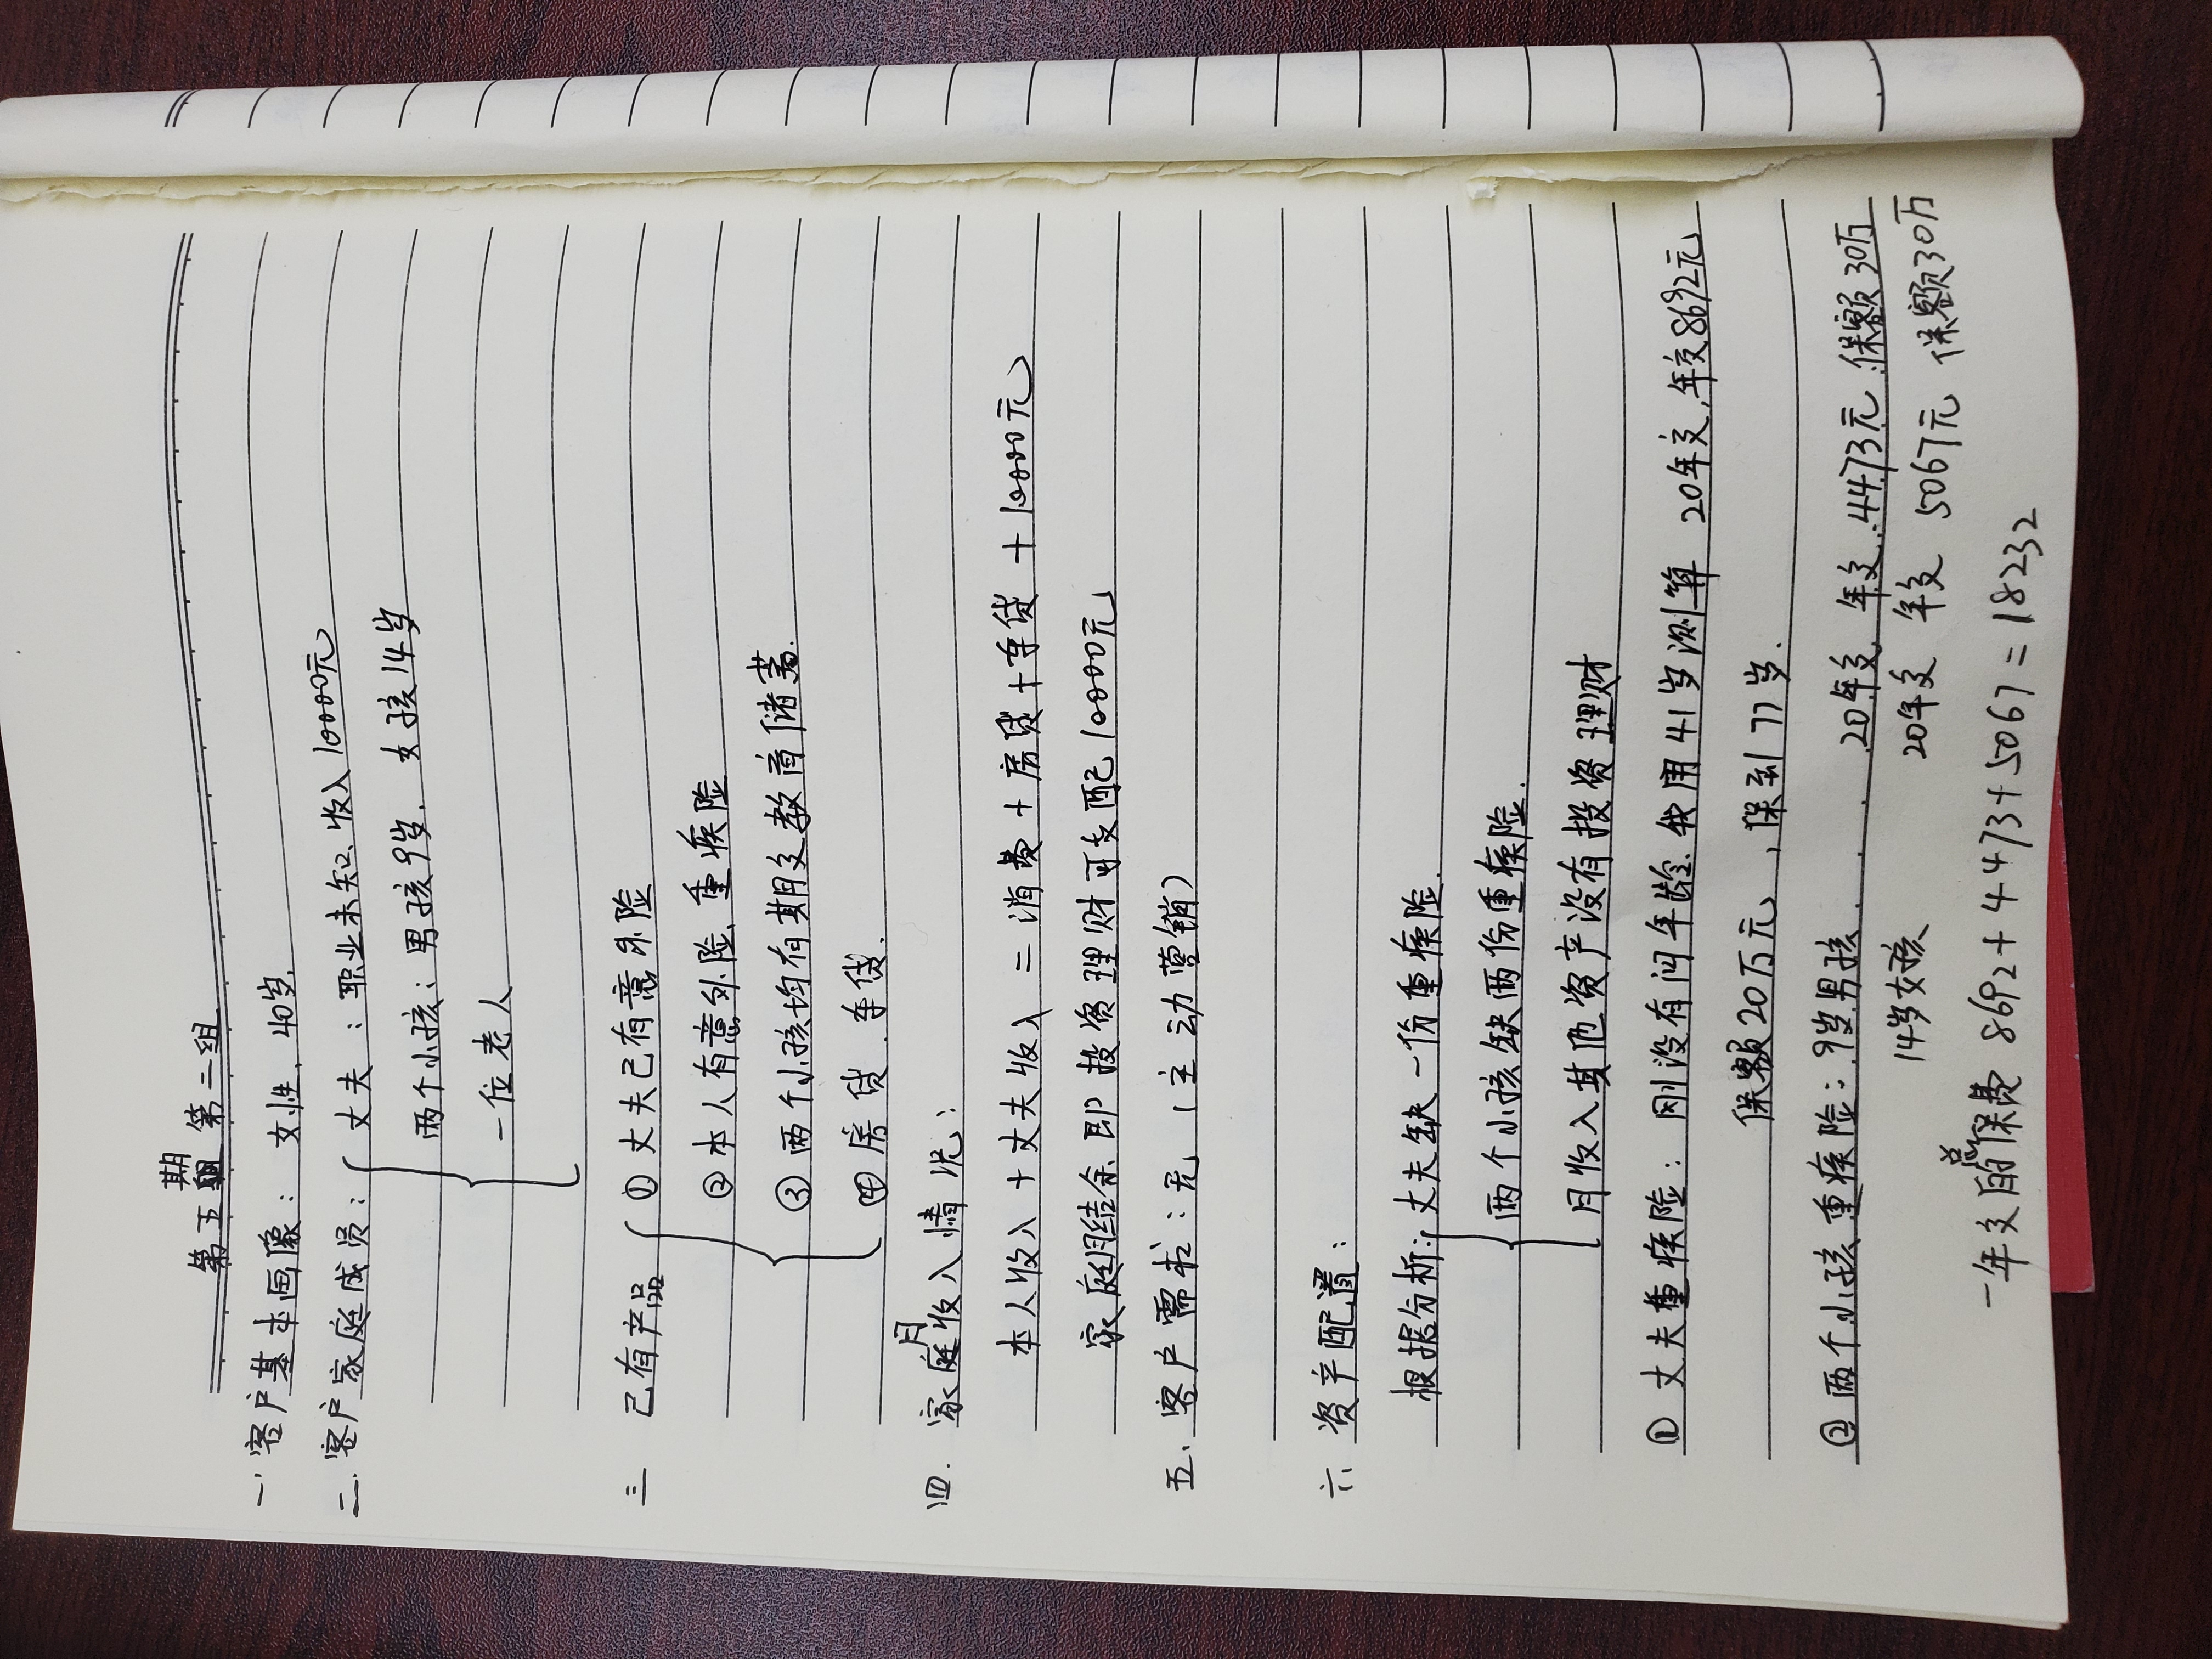 第五期 第二组
一、客户基本画像：女性、40岁.
二、客户家庭成员：丈夫：职业未知、收入10000元
两个小孩：男孩9岁、女孩14岁
一位老人
三 已有产品 ①丈夫已有意外险
②本人有意外险、重疾险
③两个小孩均有期交教育储蓄.
④房贷、车贷.
四、家庭月收入情况：
本人收入+丈夫收入=消费+房贷+车贷+10000元
家庭月结余即投资理财可支配10000元
五、客户需求：无（主动营销）
六、资产配置：
根据分析：丈夫缺一份重疾险.
两个小孩缺两份重疾险.
月收入其他资产没有投资理财
①丈夫重疾险：刚没有问年龄、我用41岁测算 20年交,年交8692元
保额20万元，保到77岁.
②两个小孩重疾险：9岁男孩 20年交 年交4473元 保额30万
14岁女孩 20年交 年交 5067元 保额30万
一年交的总保费 8692+4473+5067=18232